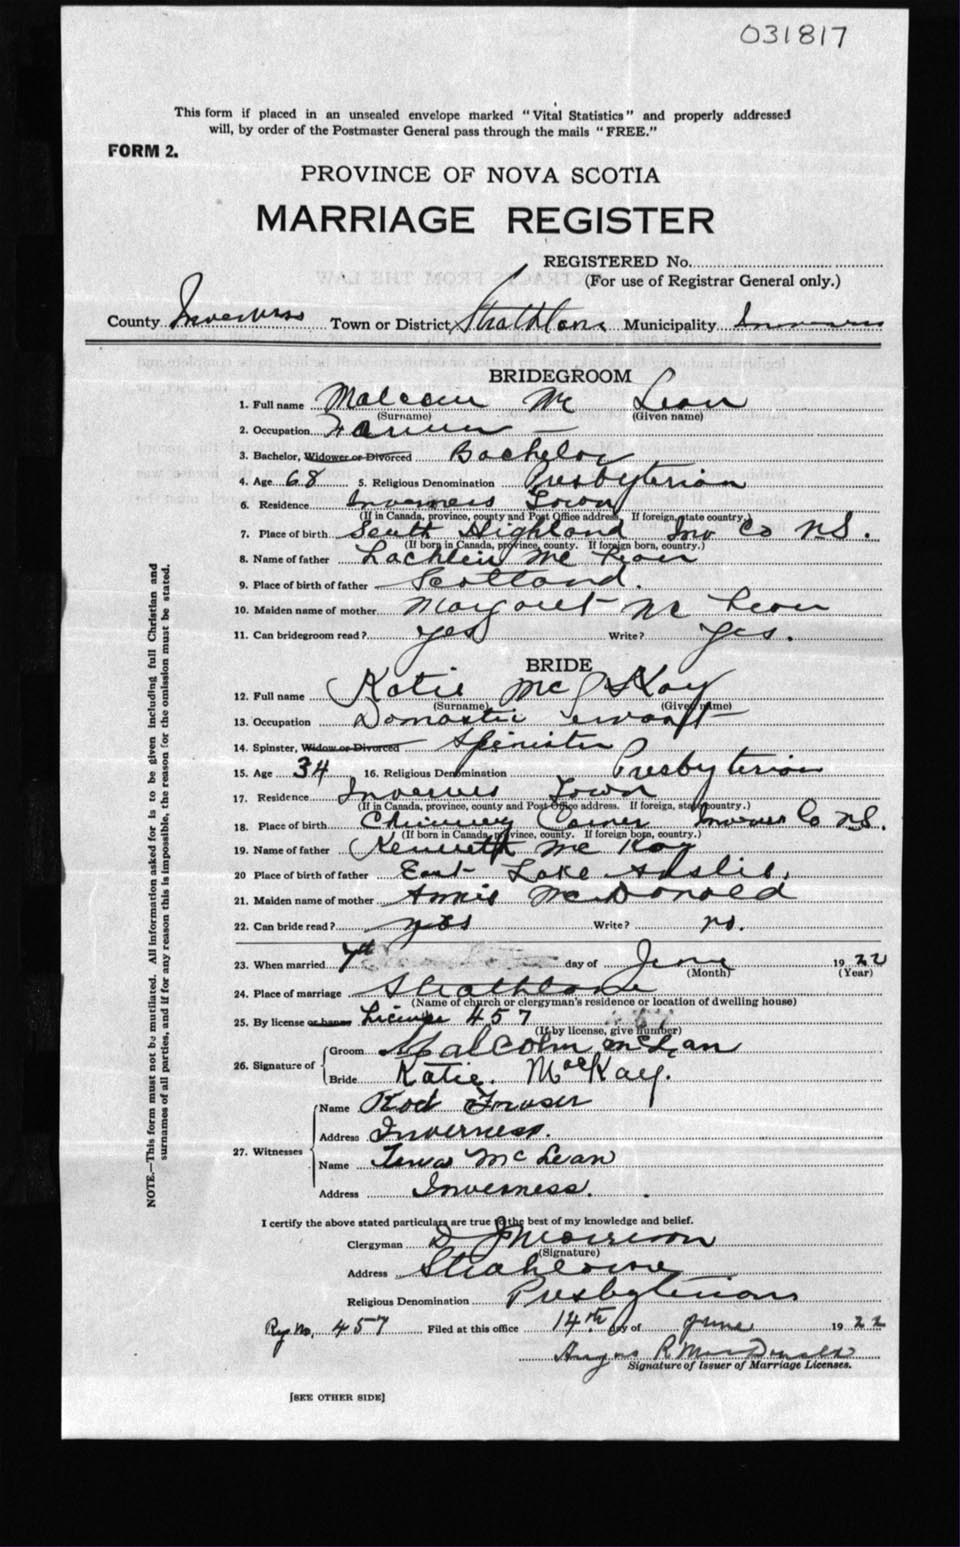 031817
This form if placed in an unsealed envelope marked "Vital Statistics" and properly addressed
will, by order of the Postmaster General pass through the mails "FREE."
FORM 2.
PROVINCE OF NOVA SCOTIA
MARRIAGE REGISTER
REGISTERED No.
(For use of Registrar General only.)
County Inverness Town or District Strathlorne Municipality Inverness
BRIDEGROOM
1. Full name Malcolm Mc Lean
(Surname) (Given name)
2. Occupation Farmer
3. Bachelor, Widower or Divorced Bachelor
4. Age 68 5. Religious Denomination Presbyterian
6. Residence Inverness Town
(If in Canada, province, county and Post Office address. If foreign, state country.)
7. Place of birth South Highland Inv Co N.S.
(If born in Canada, province, county. If foreign born, country.)
8. Name of father Lachlin Mc Lean
9. Place of birth of father Scotland.
10. Maiden name of mother Margaret Mc Lean
11. Can bridegroom read? yes Write? Yes.
BRIDE
12. Full name Katie Mc Kay
(Surname) (Given name)
13. Occupation Domastic servant
14. Spinster, Widow or Divorced Spinister
15. Age 34 16. Religious Denomination Presbyterian
17. Residence Inverness Town
(If in Canada, province, county and Post Office address. If foreign, state country.)
18. Place of birth Chimney Corner Inverness Co N.S.
(If born in Canada, province, county. If foreign born, country.)
19. Name of father Kenneth Mc Kay
20 Place of birth of father East Lake Anslie.
21. Maiden name of mother Annie McDonald
22. Can bride read? yes Write? no.
23. When married 7th day of June 1922
(Month) (Year)
24. Place of marriage Strathlorne
(Name of church or clergyman's residence or location of dwelling house)
25. By license or banns License 457
(If by license, give number)
26. Signature of
Groom Malcolm McLean
Bride Katie. MacKay.
27. Witnesses
Name Rod Fraser
Address Inverness.
Name McLean
Address Inverness.
I certify the above stated particulars are true to the best of my knowledge and belief.
Clergyman D J Morrison
(Signature)
Address Strahlorne
Religious Denomination Presbyterian
Reg No. 457 Filed at this office 14th day of June 1922
Angus R MacDonald
Signature of Issuer of Marriage Licenses.
[SEE OTHER SIDE]
NOTE.—This form must not be mutilated. All information asked for is to be given including full Christian and
surnames of all parties, and if for any reason this is impossible, the reason for the omission must be stated.